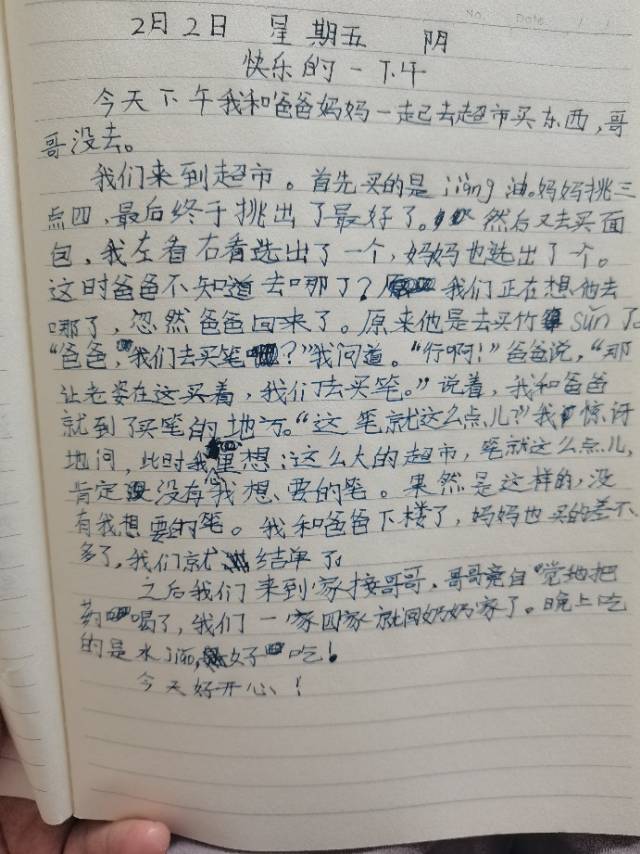 No. Date / /
2月2日 星期五 阴
快乐的一下午
今天下午我和爸爸妈妈一起去超市买东西,哥
哥没去。
我们来到超市。首先买的是jiàng油。妈妈挑三
点四,最后终于挑出了最好了。然后又去买面
包,我左看右看选出了一个,妈妈也选出了一个。
这时爸爸不知道去哪了?我们正在想他去
哪了,忽然爸爸回来了。原来他是去买竹sǔn了。
“爸爸,我们去买笔?”我问道。“行啊!”爸爸说,“那
让老婆在这买着,我们去买笔。”说着,我和爸爸
就到了买笔的地方。“这笔就这么点儿?”我惊讶
地问,此时我里想:这么大的超市,笔就这么点儿,
肯定没有我想要的笔。果然是这样的,没
有我想要的笔。我和爸爸下楼了,妈妈也买的差不
多了,我们就结单了。
之后我们来到家接哥哥,哥哥竟自觉地把
药喝了,我们一家四家就回奶奶家了。晚上吃
的是水jiǎo,好吃!
今天好开心!